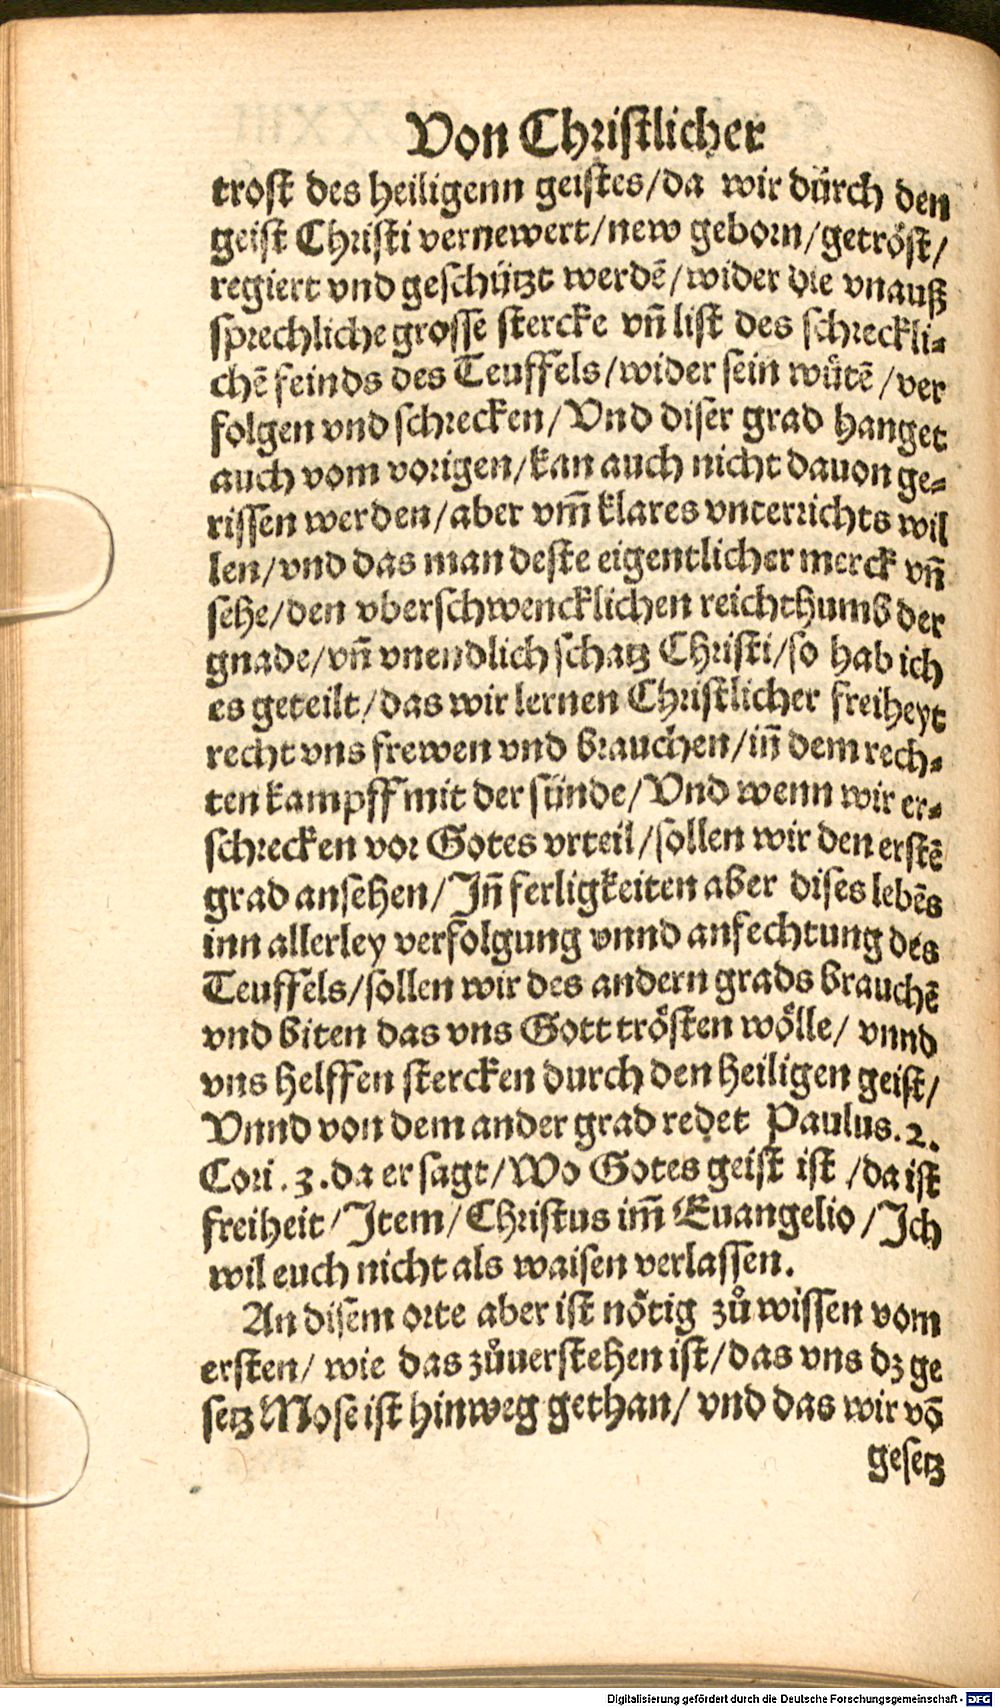 Von Christlicher
trost des heiligenn geistes/da wir dürch den
geist Christi vernewert/new geborn/getröst/
regiert vnd geschützt werdē/wider die vnauß
sprechliche grosse stercke vn̄ list des schreckli-
chē feinds des Teuffels/wider sein wütē/ver
folgen vnd schrecken/Vnd diser grad hanget
auch vom vorigen/kan auch nicht dauon ge-
rissen werden/aber vm̄ klares vnterrichts wil
len/vnd das man deste eigentlicher merck vn̄
sehe/den vberschwencklichen reichthumb der
gnade/vn̄ vnendlich schatz Christi/so hab ich
es geteilt/das wir lernen Christlicher freiheyt
recht vns frewen vnd brauchen/in̄ dem rech-
ten kampff mit der sünde/Vnd wenn wir er-
schrecken vor Gotes vrteil/sollen wir den erstē
grad ansehen/Jn̄ ferligkeiten aber dises lebēs
inn allerley verfolgung vnnd anfechtung des
Teuffels/sollen wir des andern grads brauchē
vnd biten das vns Gott trösten wölle/ vnnd
vns helffen stercken durch den heiligen geist/
Vnnd von dem ander grad redet Paulus.2.
Cori.3.da er sagt/Wo Gotes geist ist/da ist
freiheit/Jtem/Christus im̄ Euangelio/Jch
wil euch nicht als waisen verlassen.
An disem orte aber ist nötig zů wissen vom
ersten/ wie das zůuerstehen ist/das vns dz ge
setz Mose ist hinweg gethan/ vnd das wir vō
gesetz
Digitalisierung gefördert durch die Deutsche Forschungsgemeinschaft - DFG